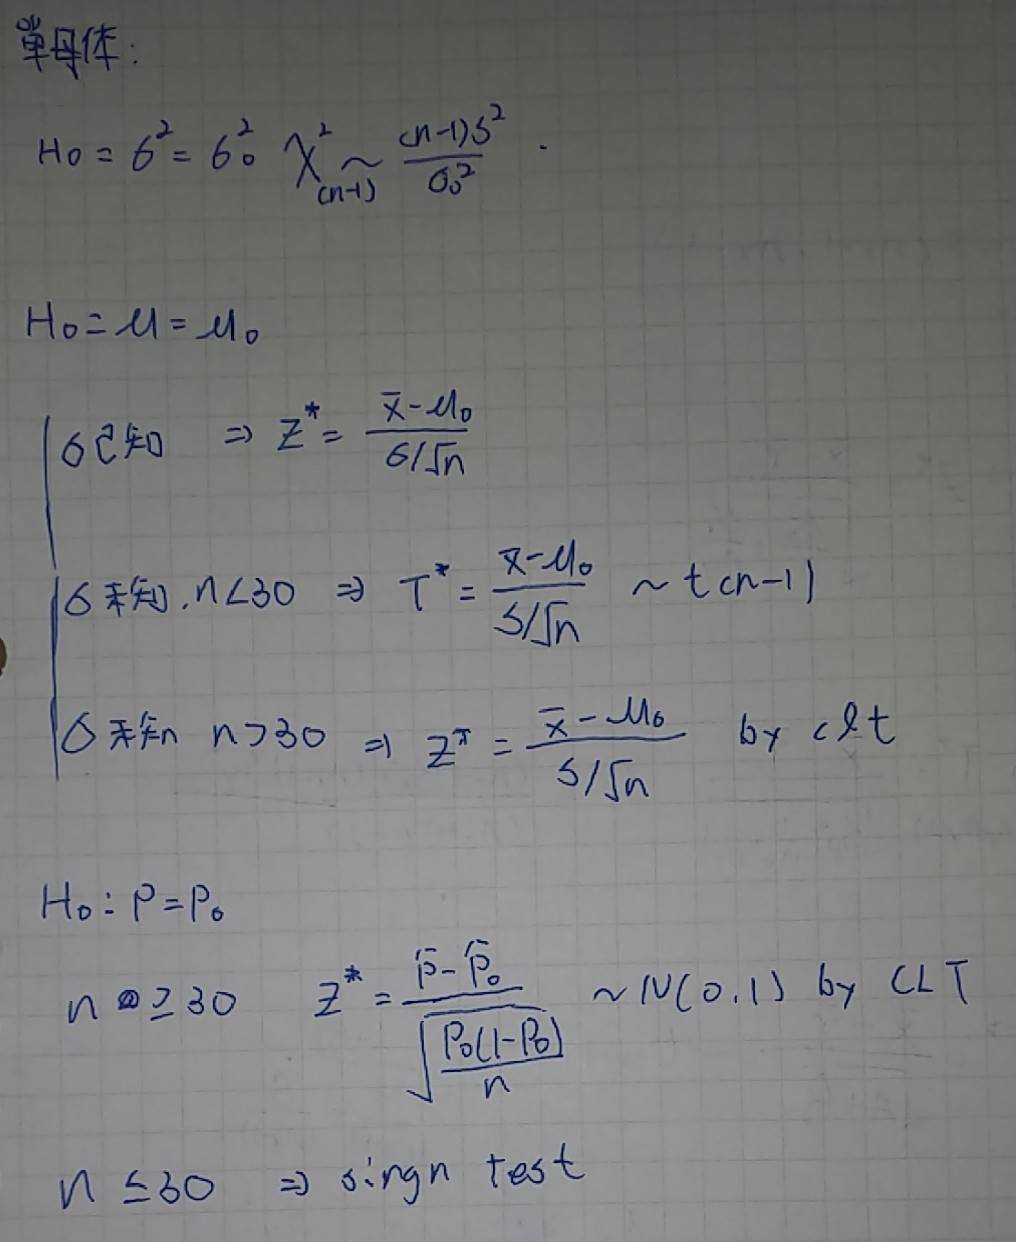 單母体:
H₀ = σ² = σ₀² χ²₍ₙ₋₁₎ ~ (n-1)S²/σ₀² .
H₀ = μ = μ₀
σ已知 ⇒ Z* = (x̄-μ₀)/(σ/√n)
σ未知.n<30 ⇒ T* = (x̄-μ₀)/(S/√n) ~ t(n-1)
σ未知 n>30 ⇒ Z* = (x̄-μ₀)/(S/√n) by clt
H₀: P=P₀
n ≥ 30 Z* = (p̄-p̄₀)/√(P₀(1-P₀)/n) ~ N(0.1) by CLT
n ≤ 30 ⇒ singn test